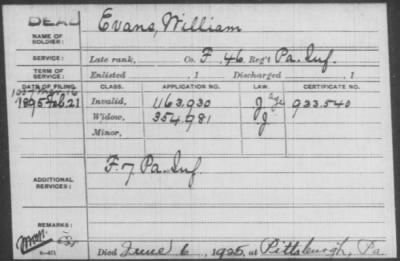 DEAD
Evans, William
NAME OF
SOLDIER:
SERVICE: Late rank, Co. F, 46 Reg't Pa. Inf.
TERM OF
SERVICE: Enlisted , 1 Discharged , 1
DATE OF FILING. CLASS. APPLICATION NO. LAW. CERTIFICATE NO.
1895 Feb. 21 Invalid, 1163,930 J 933.540
Widow, 354,981 J.
Minor,
ADDITIONAL
SERVICES: F. 7 Pa. Inf.
REMARKS:
Died June 6, 1925, at Pittsburgh, Pa.